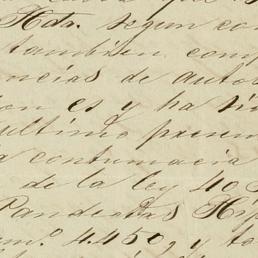 Hda. segun con
tambien comp
ncias de autor
ion es y ha
ultimo presen
a contumacia
de la ley 40
Pandectas Hip
m.º 4.450, y to